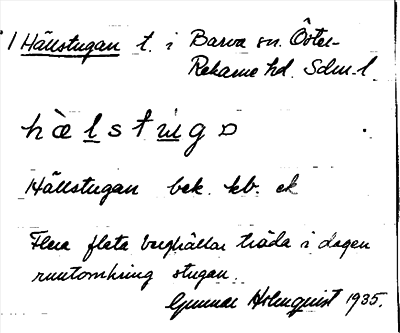 Hällstugan t. i Barva sn. Öster-
Rekarne hd. Sdm. l.
hæ̀lstùgɑ
Hällstugan bek. kb. ek
Flera flata berghällar träda i dagen
runtomkring stugan.
Gunnar Holmquist 1935.